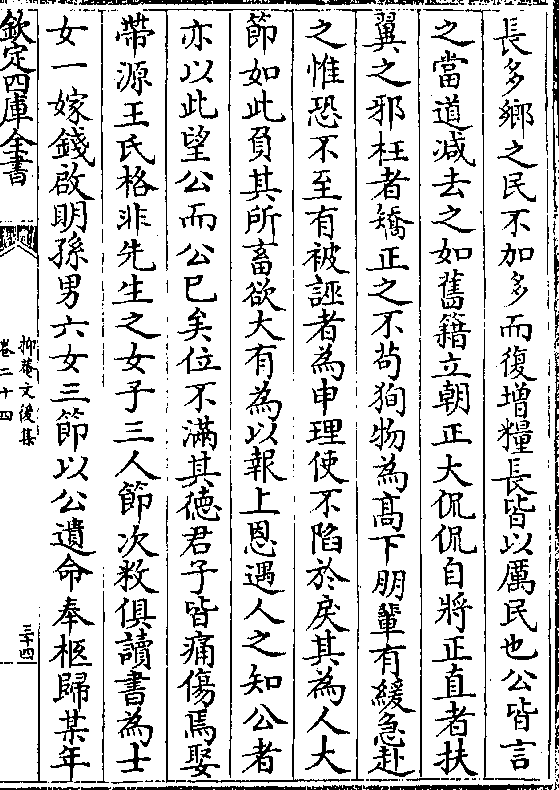 長多鄉之民不加多而復增糧長皆以厲民也公皆言
之當道減去之如舊籍立朝正大侃侃自將正直者扶
翼之邪枉者矯正之不茍狥物為髙下朋輩有緩急赴
之惟恐不至有被誣者為申理使不陷於戾其為人大
節如此負其所畜欲大有為以報上恩遇人之知公者
亦以此望公而公已矣位不滿其徳君子皆痛傷焉娶
帶源王氏格非先生之女子三人節次敉俱讀書為士
女一嫁錢啟明孫男六女三節以公遺命奉柩歸某年
欽定四庫全書
抑菴文後集
卷二十四
三十四